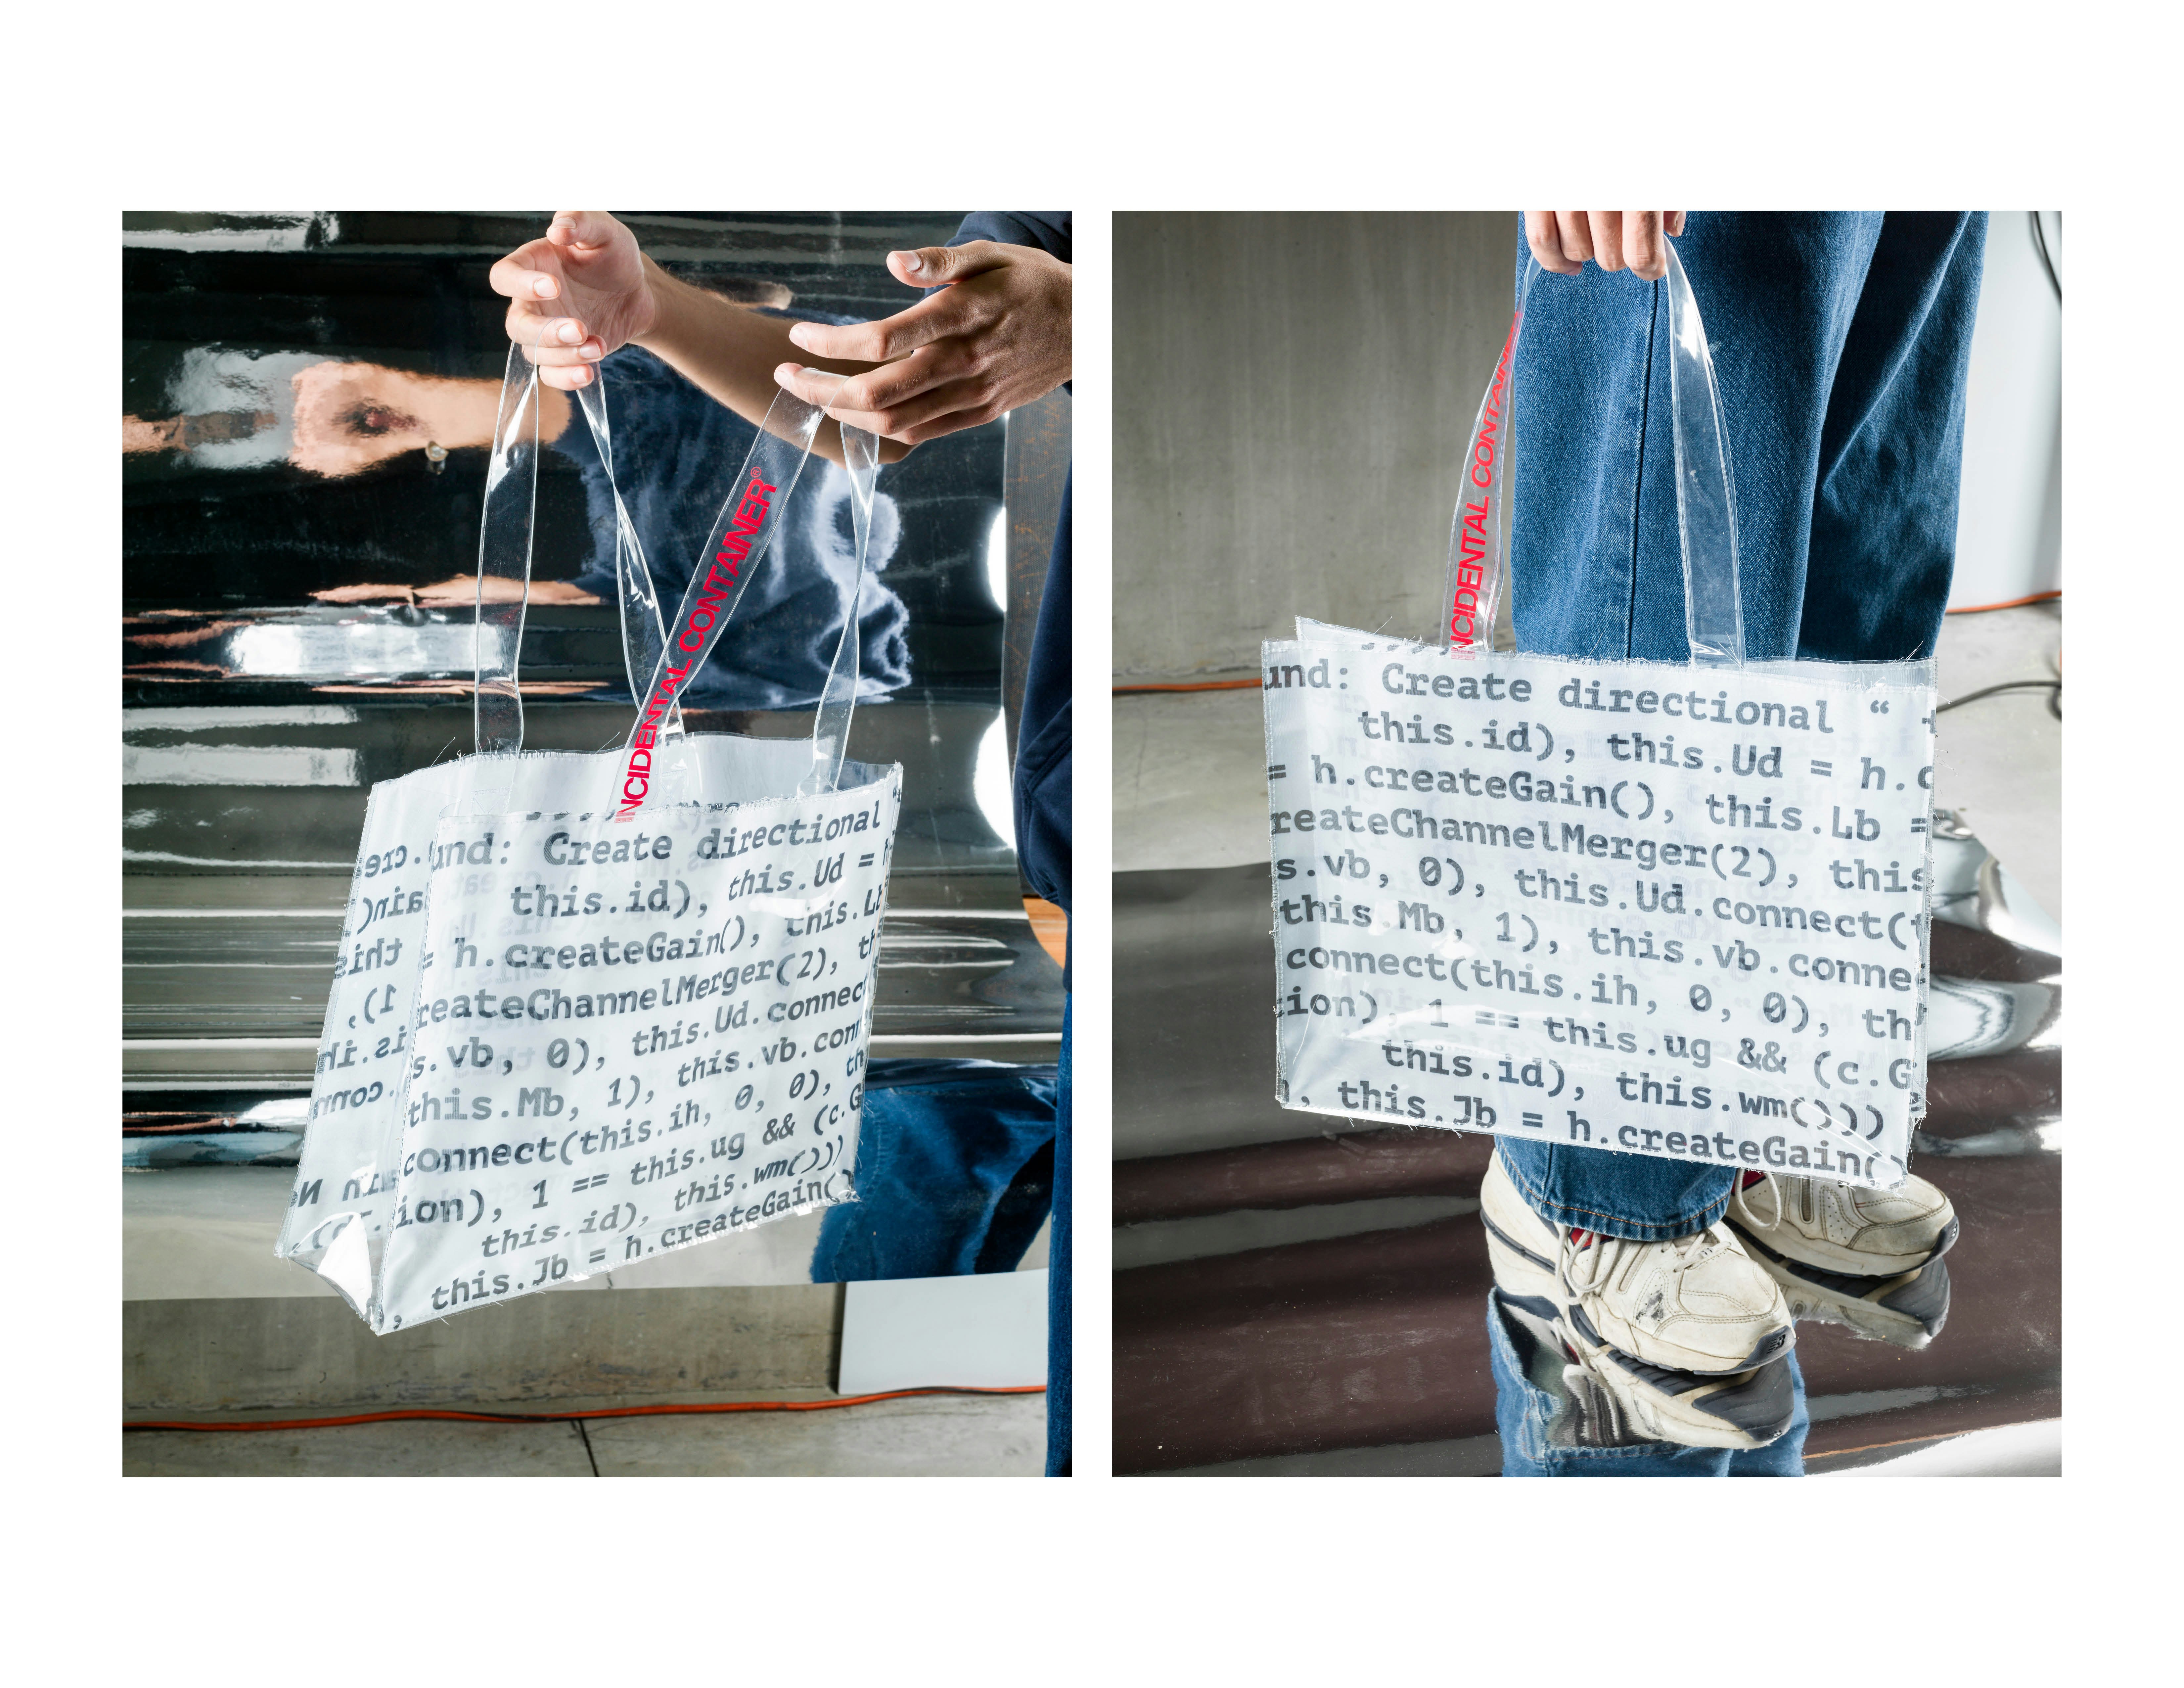 INCIDENTAL CONTAINER®
und: Create directional “
this.id), this.Ud = h
= h.createGain(), this.Lb
reateChannelMerger(2), th
s.vb, 0), this.Ud.connec
this.Mb, 1), this.vb.conn
connect(this.ih, 0, 0), th
ion), 1 == this.ug && (c.G
this.id), this.wm()))
, this.Jb = h.createGain()
INCIDENTAL CONTAINER
und: Create directional “
this.id), this.Ud = h.c
= h.createGain(), this.Lb =
reateChannelMerger(2), this
s.vb, 0), this.Ud.connect(t
this.Mb, 1), this.vb.conne
connect(this.ih, 0, 0), th
tion), 1 == this.ug && (c.G
this.id), this.wm()))
, this.Jb = h.createGain()